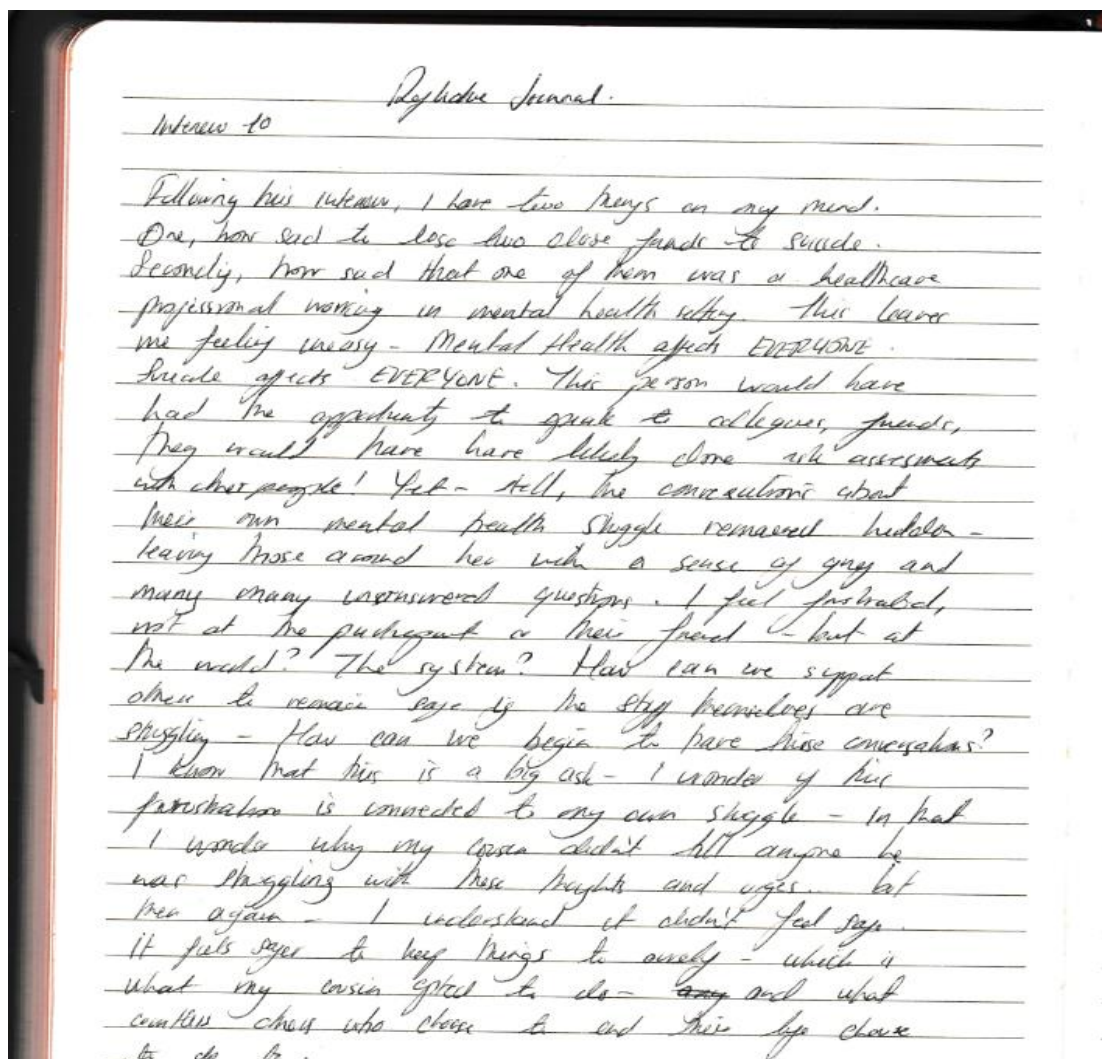 Reflective Journal.
Interview 10
Following this interview, I have two things on my mind.
One, how sad to lose two close friends to suicide.
Secondly, how sad that one of them was a healthcare
professional working in mental health setting. This leaves
me feeling uneasy - Mental Health affects EVERYONE.
Suicide affects EVERYONE. This person would have
had the opportunity to speak to collegues, friends,
they would have have likely done risk assessments
with other people! Yet - still, the conversations about
their own mental health struggle remained hidden -
leaving those around her with a sense of grief and
many many unanswered questions. I feel frustrated,
not at the participant or their friend - but at
the world? The system? How can we support
others to remain safe if the staff themselves are
struggling - How can we begin to have these conversations?
I know that this is a big ask - I wonder if this
frustration is connected to my own struggle - in that
I wonder why my cousin didn't tell anyone he
was struggling with these thoughts and urges.. but
then again - I understand it didn't feel safe.
it feels safer to keep things to - which is
what my cousin opted to do - any and what
countless others who choose to end their life choose
to do